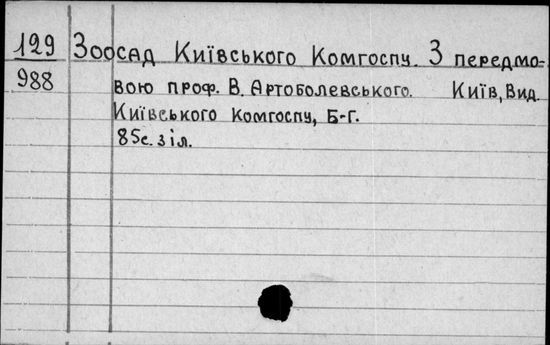 129 Зоосад Київського Комгоспу. З передмо-
988 вою проф. В. Артоболевського. Київ, Вид.
Київського Комгоспу, Б-Г.
85с. з іл.